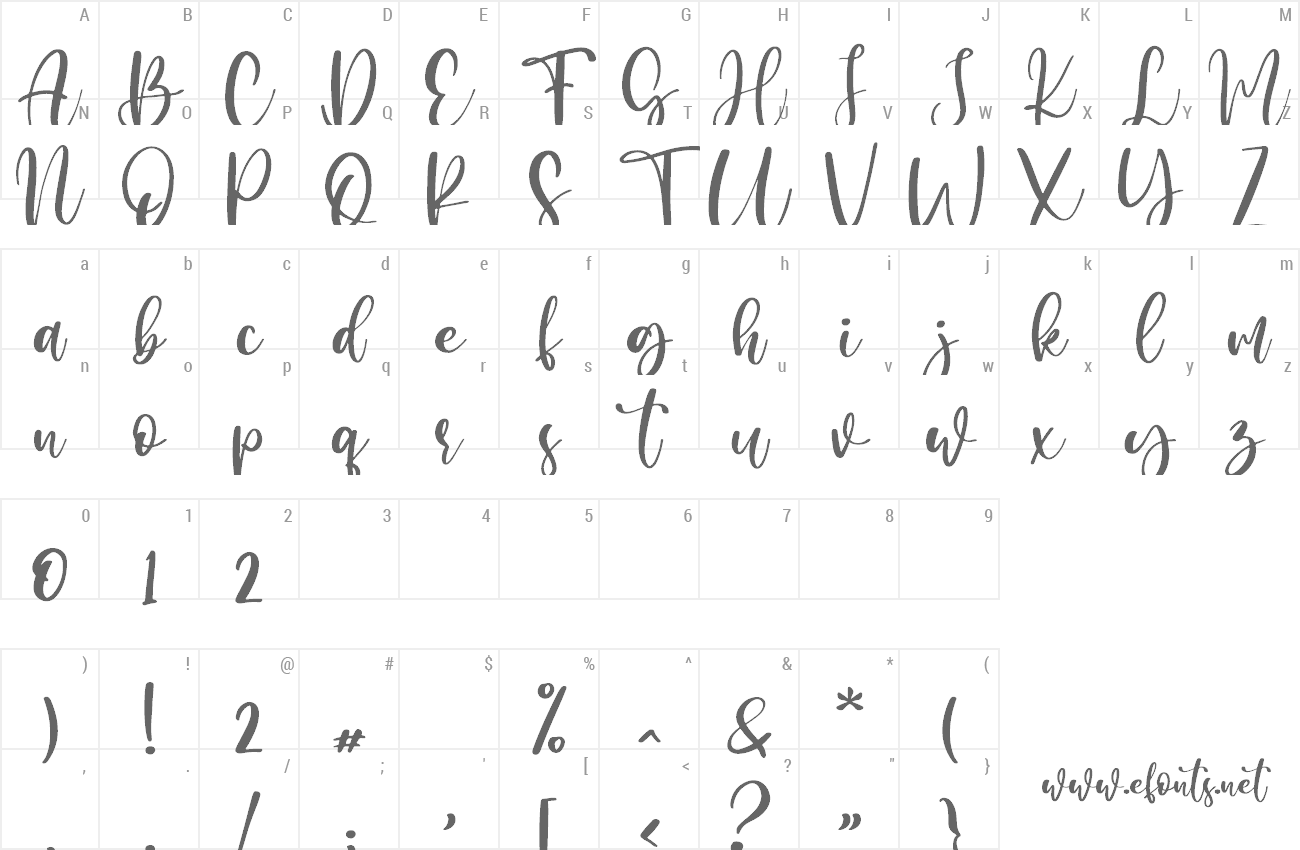 A B C D E F G H I J K L M
A B C D E F G H I J K L M
N O P Q R S T U V W X Y Z
N O P Q R S T U V W X Y Z
a b c d e f g h i j k l m
a b c d e f g h i j k l m
n o p q r s t u v w x y z
n o p q r s t u v w x y z
0 1 2 3 4 5 6 7 8 9
0 1 2
) ! @ # $ % ^ & * (
) ! 2 # % ^ & * (
, . / ; ' [ < ? " }
, . / ; ' [ < ? " }
www.efonts.net